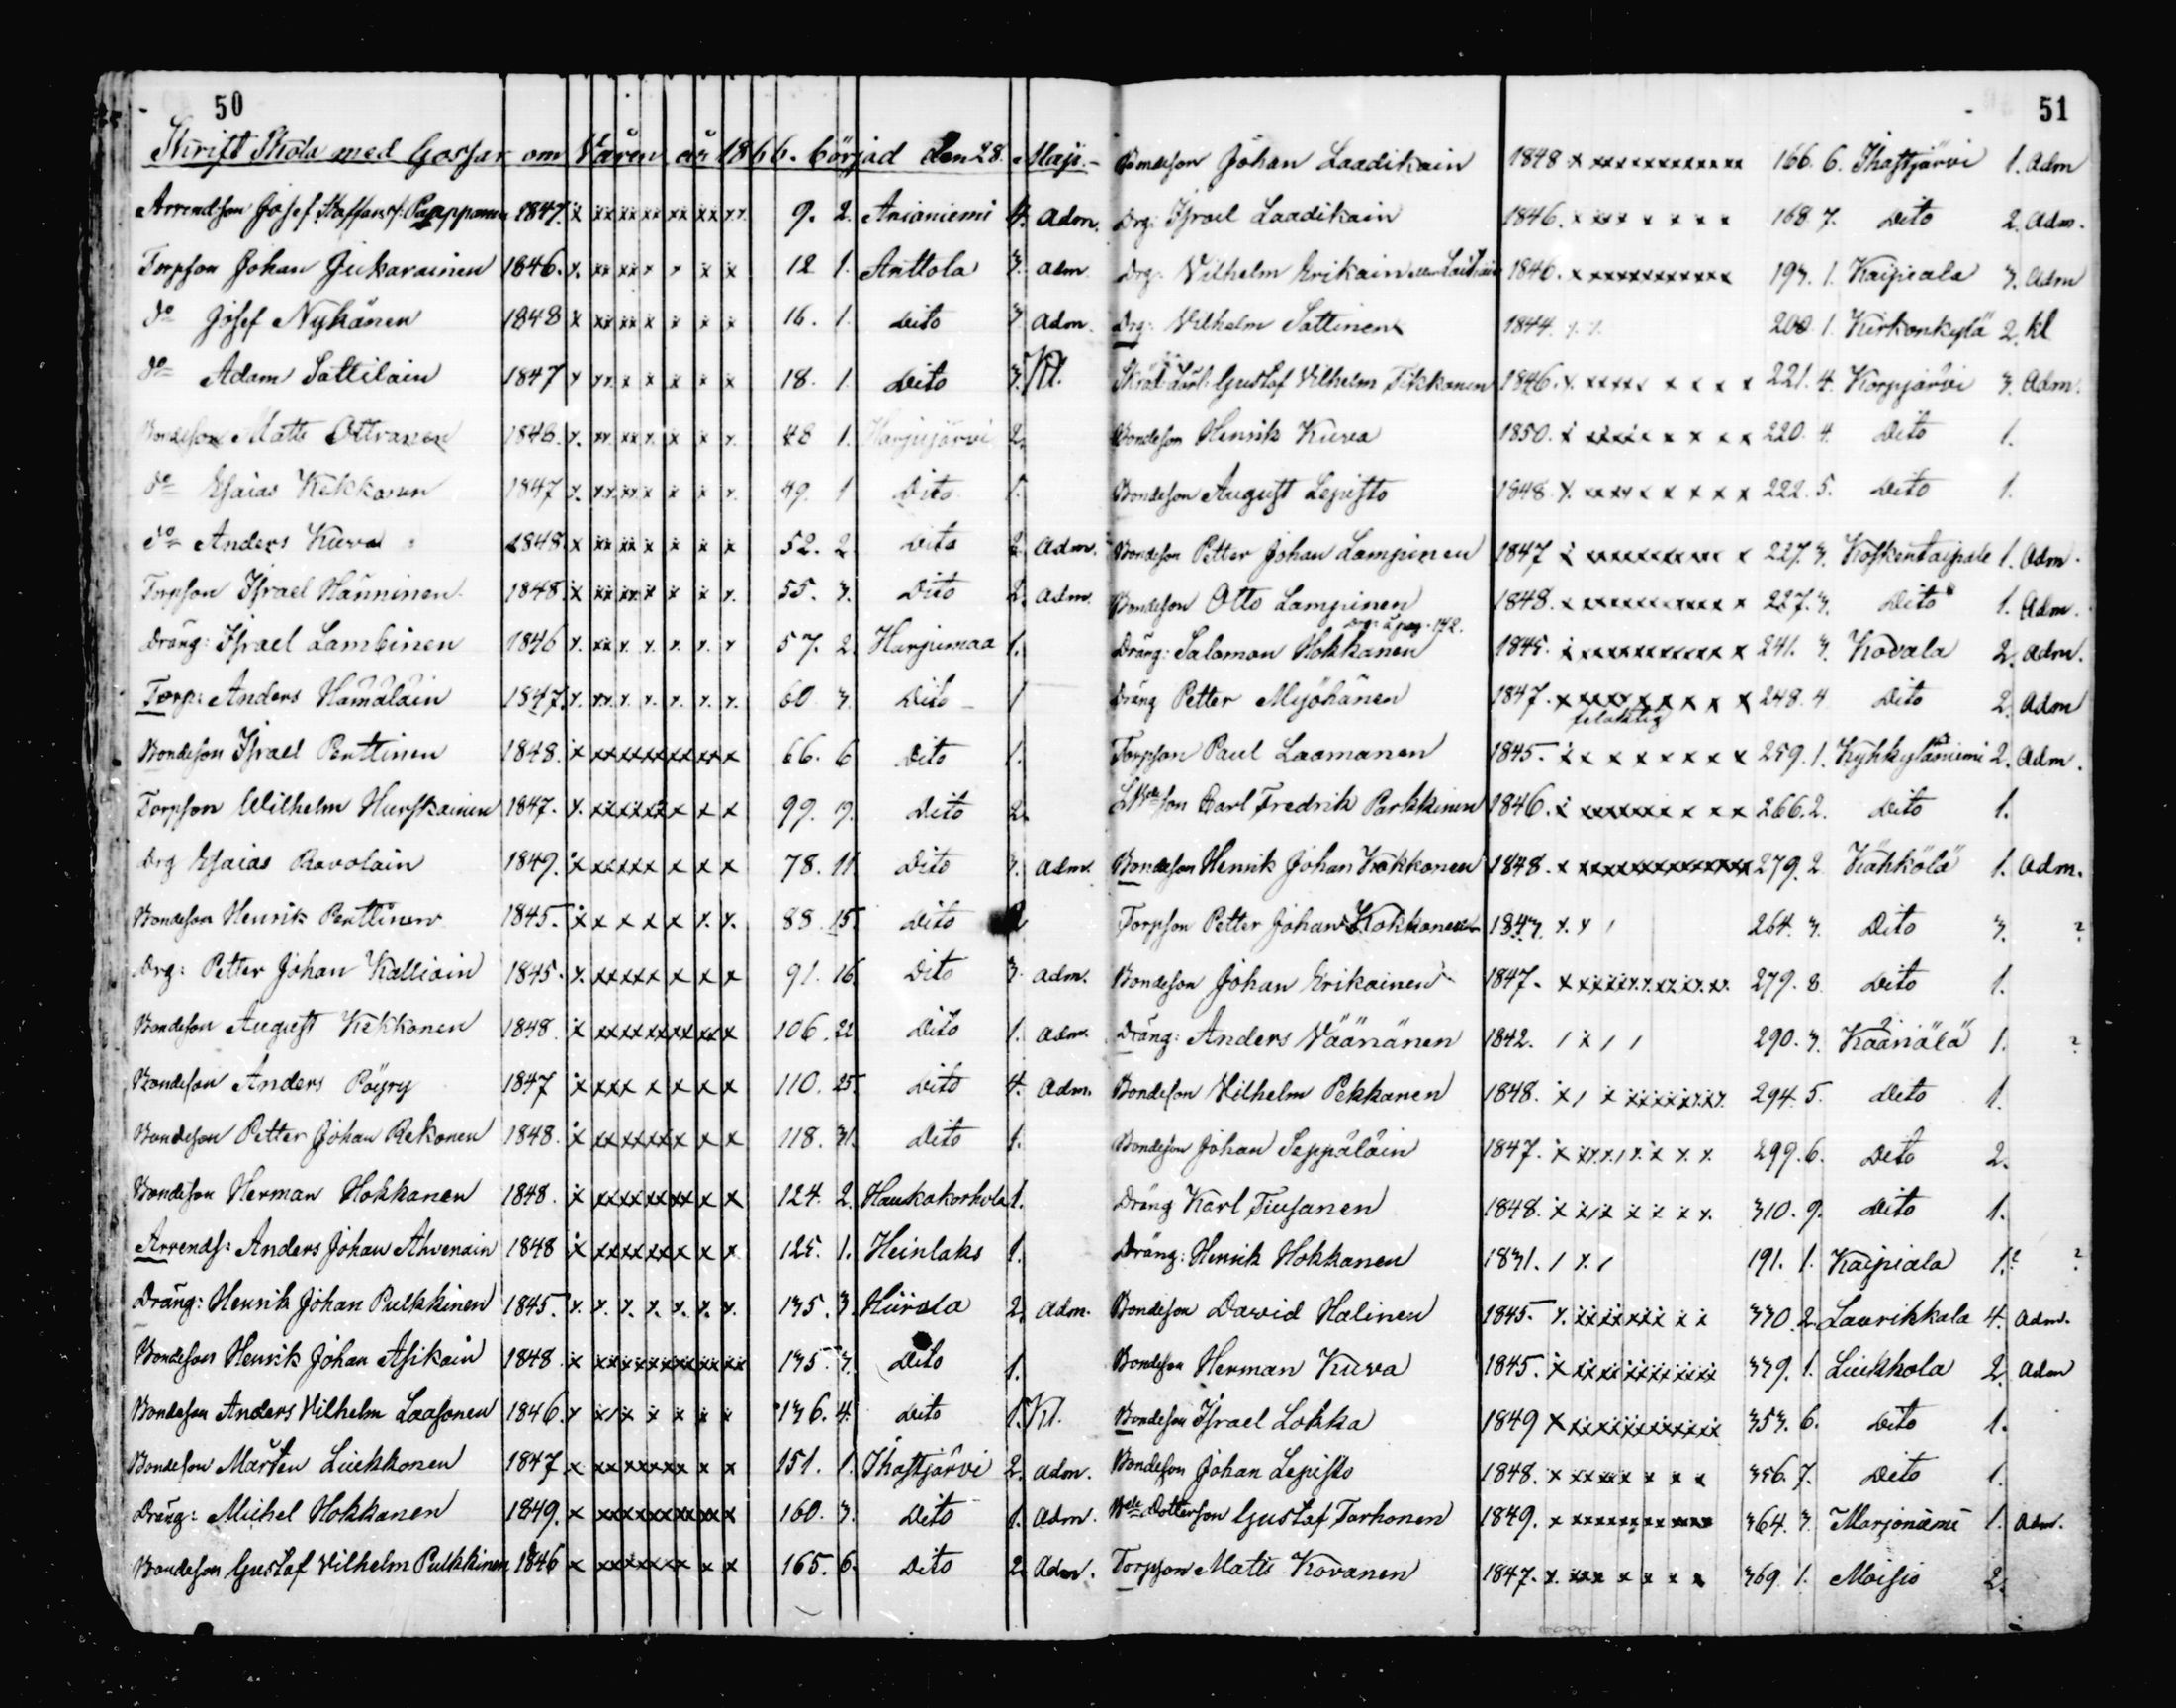 50
Skrift Skola med Gossar om Våren år 1866. börjad den 28. Maji.-
Arrendson Josef Paappanen 1847. x xx xx xx xx xx x.x. 9. 2. Anianiemi 4. adm.
Torpson Johan Jukarainen 1846. x. xx xx x x x x 12 1. Anttola 3. adm.
do Josef Nykänen 1848 x xx xx x x x x 16. 1. dito 3 adm.
do Adam Sattilain 1847 x xx x x x x x 18. 1. dito 3. Kl.
Bondeson Matts Ottranen 1846. x. xx. xx x. x x x. 48 1. Harjujärvi 2.
do Esaias Kekkonen 1847 x. xx xx x x x x. 49. 1 Dito 1.
do Anders Kurva 1848. x xx xx x x x x 52. 2 dito 2. adm.
Torpson Israel Hänninen 1848. x xx xx x x x x. 55. 3. Dito 2. adm.
Dräng: Israel Lambinen 1846 x. xx x. x. x. x. x 57. 2. Harjumaa 1.
Torp: Anders Hämäläin 1847. x. xx x. x. x. x. x. 60 3. Dito - 1
Bondeson Israel Penttinen 1848. x xxxxxxxxxx x 66. 6 dito 1.
Torpson Wilhelm Hurskainen 1847. x. xxxxxx x x x 99. 9. Dito 2.
Drg Esaias Ravolain 1849. x xxxxx x x x 78. 11. Dito 3. adm.
Bondeson Henrik Penttinen 1845. x x x x x x. x. 88. 15. dito
Drg: Petter Johan Kalliain 1845. x. xxxxx x x x 91. 16. dito 3. adm.
Bondeson August Kekkonen 1848. x xxxxxxxxxx x 106. 22 dito 1. adm.
Bondeson Anders Pöyry 1847 x xxx x x x x x 110. 25. dito 4. adm.
Bondeson Petter Johan Rekonen 1848. x xxxxxxx x x 118. 31. dito 1.
Bondeson Herman Hokkanen 1848. x xxxxxxxx x x 124. 2. Haukakorhola 1.
Arrends: Anders Johan Ahvenain 1848 x xxxxxxx x x 125. 1. Heinlaks 1.
Dräng: Henrik Johan Pulkkinen 1845. x. x. x. x. x. x. x. 135. 3. Hiirola 2. adm.
Bondeson Henrik Johan Asikain 1848. x xxxxxxxxxxxx 135. 3. dito 1.
Bondeson Anders Vilhelm Laasonen 1846. x x/x x x x x 136. 4. dito 1. Kl.
Bondeson Mårten Liukkonen 1847 x xxxxxxx x x 151. 1. Ihastjärvi 2. adm.
Dräng: Michel Hokkanen 1849. x xxxxxxxxxx x 160. 3. Dito 1. adm.
Bondeson Gustaf Vilhelm Pulkkinen 1846 x xxxxxxx x x 165. 6. Dito 2. adm.
51
Bondeson Johan Laadikain 1848 x xxxxxxxxxxxx 166. 6. Ihastjärvi 1. adm
Drg: Israel Laadikain 1846. x xxx x x x x x 168. 7. Dito 2. adm.
Drg: Vilhelm Erikain 1846. x xxxxxxxxxxx 193. 1. Kaipiala 3. adm
Drg: Vilhelm Sattinen 1844. x x. 200. 1. Kirkonkylä 2. kl
Gustaf Vilhelm Tikkanen 1846. x. xxxxx x x x x 221. 4. Korpjärvi 3. adm.
Bondeson Henrik Kurva 1850. x xxxxx x x x x 220. 4. Dito 1.
Bondeson August Lepisto 1848. x. xxxx x x x x x 222. 5. dito 1.
Bondeson Petter Johan Lampinen 1847 x xxxxxxxxxx x 227. 3. Koskentaipale 1. adm.
Bondeson Otto Lampinen 1848. x xxxxxxxxxx x 227. 3. Dito 1. adm.
Dräng: Salomon Hokkanen 1845. x xxxxxxxxxxx x 241. 3. Kovala 2. adm.
Dräng Petter Myöhänen 1847. x xxxxx x x x x 248. 4 Dito 2. adm
felaktig
Torpson Paul Laamanen 1845. x x x x x x x x 259. 1. Kyhkyläniemi 2. adm.
Carl Fredrik Parkkinen 1846. x xxxxxxx x x x 266. 2. dito 1.
Bondeson Henrik Johan Kokkonen 1848. x xxxxxxxxxxxxxx 279. 2 Kähkölä 1. adm.
Torpson Petter Johan Kokkonen 1843. x. x / 264. 3. Dito 3. ?
Bondeson Johan Erikainen 1847. x xxxxx.x.xx.x.x. 279. 8. Dito 1.
Dräng: Anders Väänänen 1842. / x / / 290. 3. Käänälä 1. ?
Bondeson Vilhelm Pekkanen 1848. x / x xxxxxx.x. 294. 5. dito 1.
Bondeson Johan Seppäläin 1847. x xx.x./ x. x x. x. 299. 6. Dito 2.
Dräng Karl Tiusanen 1848. x x/x x x x x. 310. 9. Dito 1.
Dräng: Henrik Hokkanen 1831. / x. / 191. 1. Kaipiala 1.? ?
Bondeson David Halinen 1845. x. xxxxxxx x x 330. 2. Laurikkala 4. adm.
Bondeson Herman Kurva 1845. x xxxxxxxxxxx 339. 1. Liukkola 2. adm
Bondeson Israel Lokka 1849 x xxxxxxxxxxxx 353. 6. dito 1.
Bondeson Johan Lepisto 1848. x xxxxx x x x 356. 7. Dito 1.
Dotterson Gustaf Tarhonen 1849. x xxxxxxxxxxx 364. 3. Marjonämi 1. adm.
Torpson Matts Kovanen 1847. x. xxx x x x x 369. 1. Moisio 2.